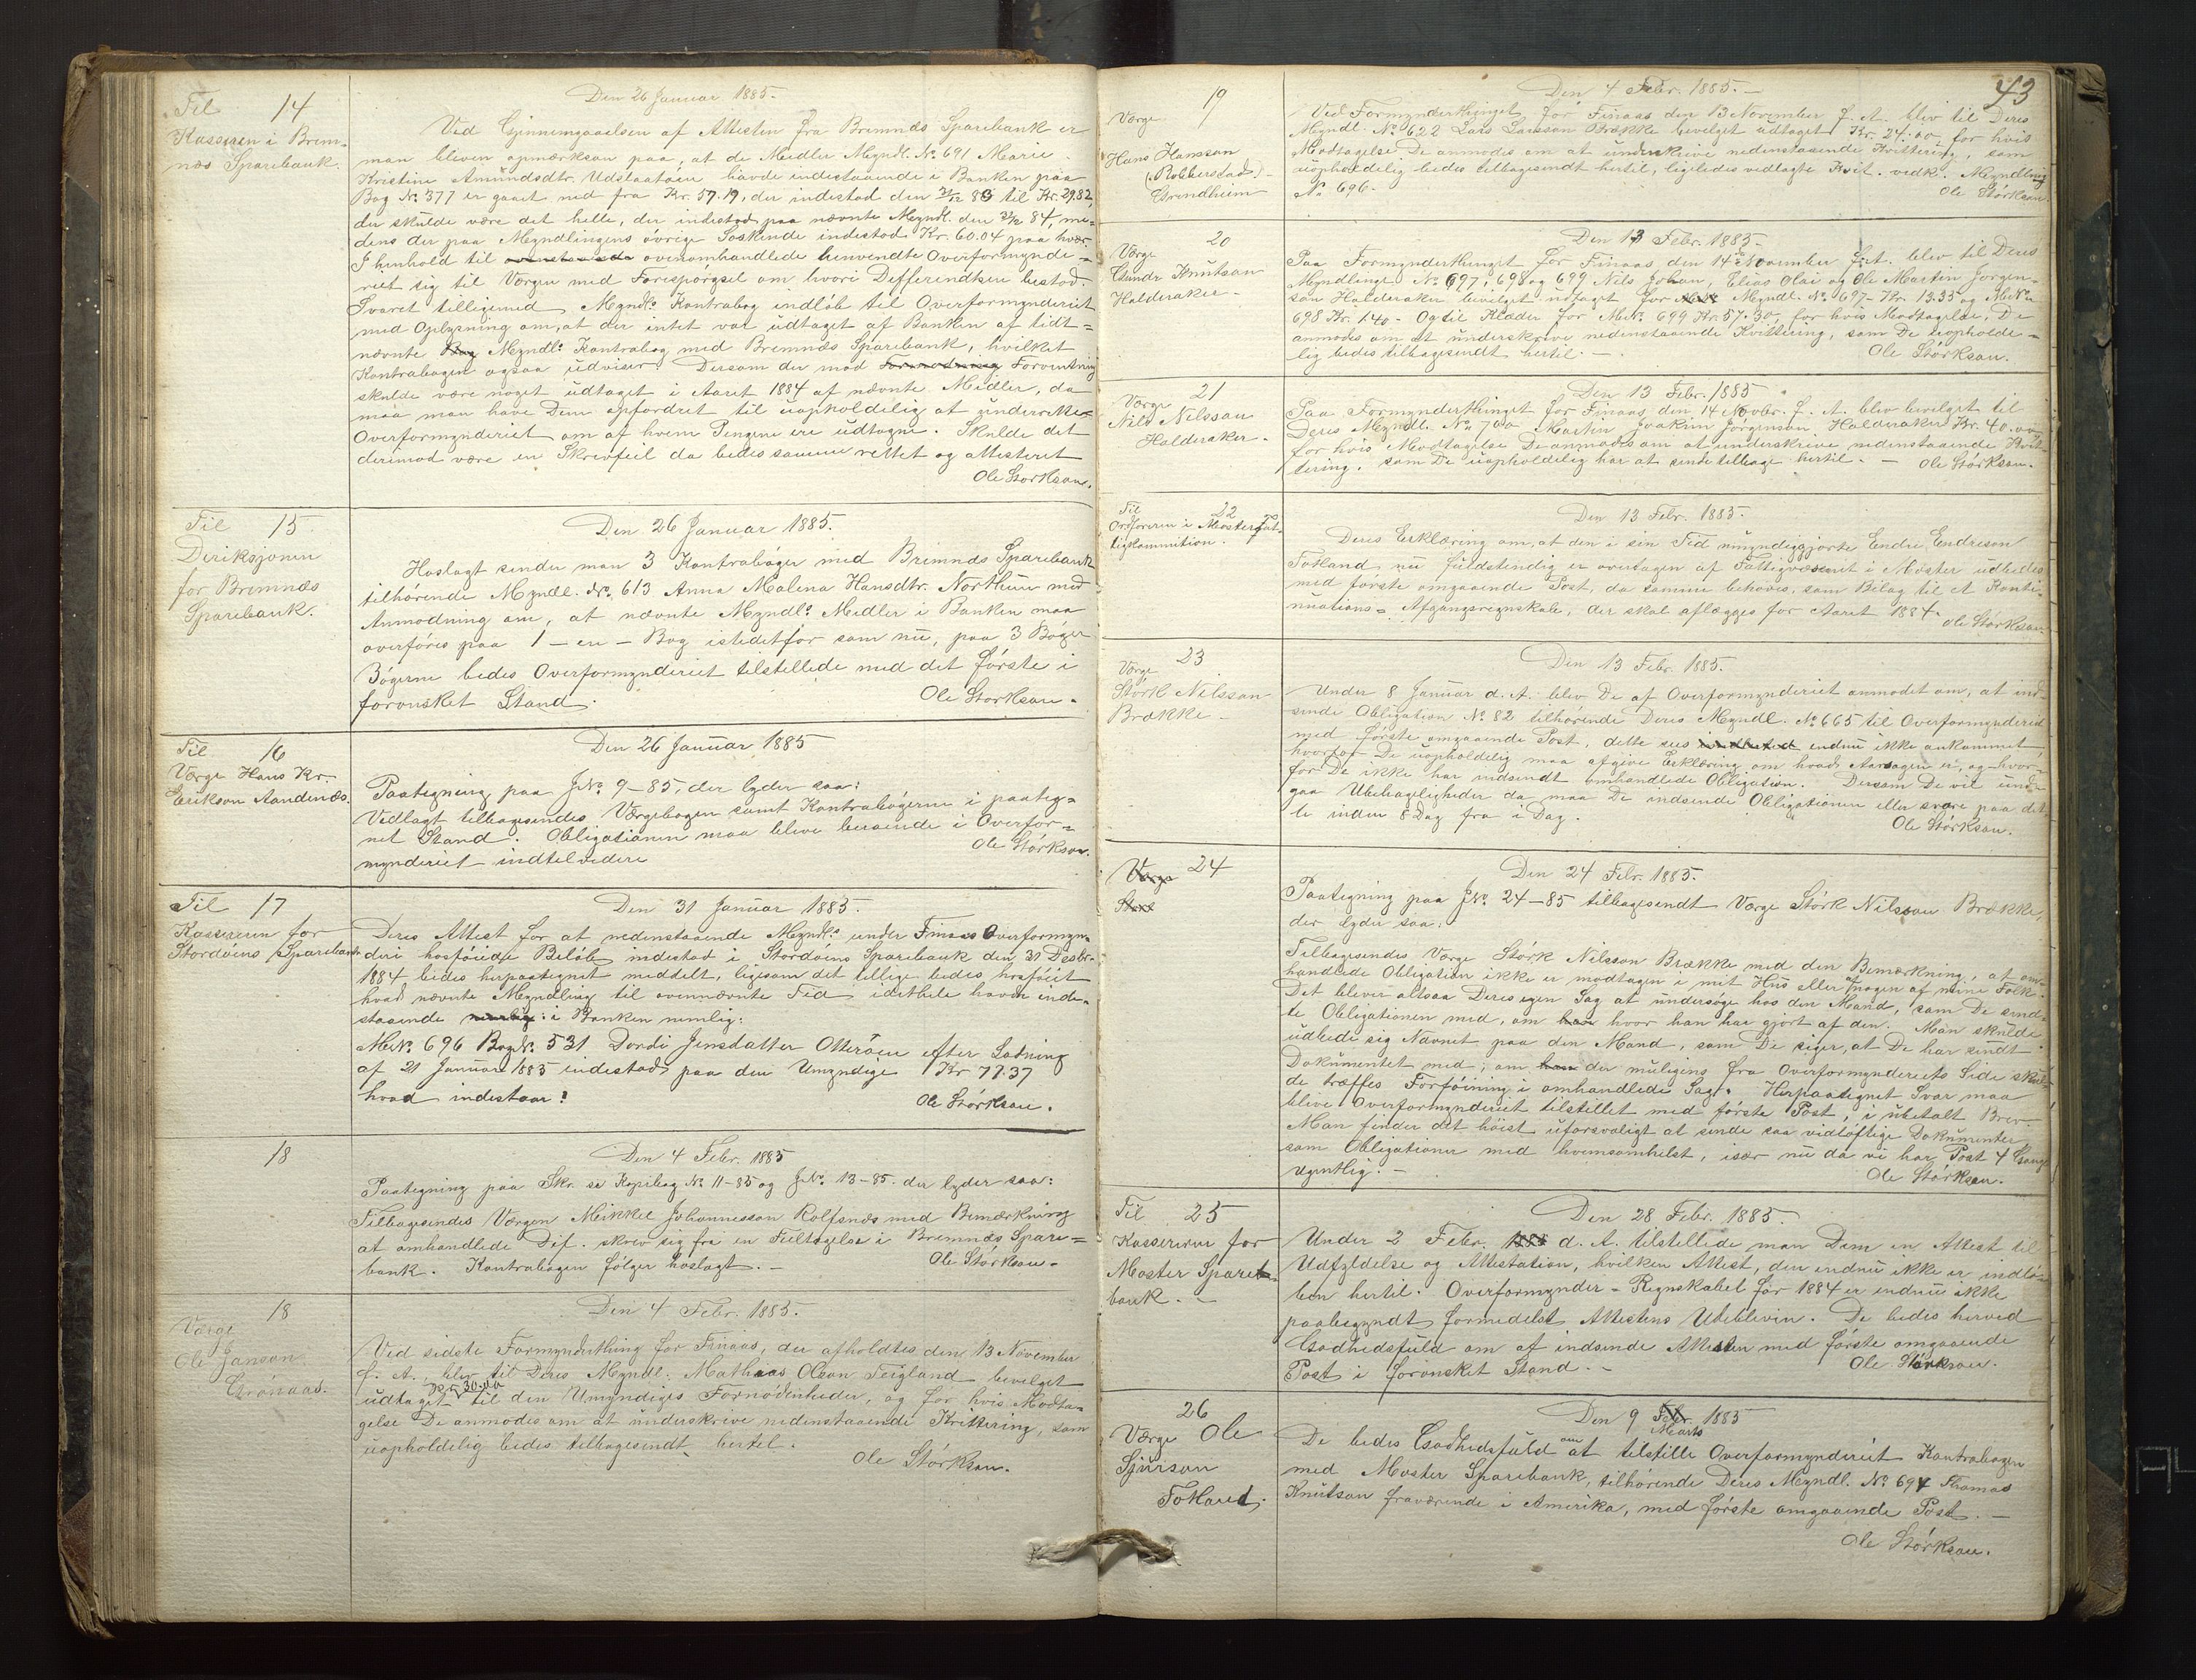 Til 14
Kasseren i Brem-
næs Sparebank.
Den 26 Januar 1885.
Ved Gjennemgaaelsen af Attesten fra Bremnæs Sparebank er
man bleven opmærksom paa, at de Midler Myndl. No. 691 Marie
Kristine Amundsdtr. Udslaatøen havde indestaaende i Banken paa
Bog No. 377 er gaaet ned fra Kr. 57.19, der indestod den 31/12 83 til Kr. 29.82,
der skulde være det hele, der indestod paa nævnte Myndl. den 31/12 84, me-
dens der paa Myndlingens øvrige Søskende indestod Kr. 60.04 paa hver.
I henhold til ovenomhandlede henvendte Overformynde-
riet sig til Værgen med Forespørgsel om hvori Differendsen bestod.
Svaret tilligemed Myndls. Kontrabog indløb til Overformynderiet
med Oplysning om, at der intet var udtaget af Banken af tidt-
nævnte Myndls. Kontrabog med Bremnæs Sparebank, hvilket
Kontrabogen ogsaa udviser. Dersom der mod Forventning
skulde være noget udtaget i Aaret 1884 af nævnte Midler, da
maa man have Dem opfordret til uopholdelig at underrette
Overformynderiet om af hvem Pengene ere udtagne. Skulde det
derimod være en Skrivfeil da bedes samme rettet og attesteret
Ole Størkson.
Til 15
Deriksjonen
for Bremnæs
Sparebank.
Den 26 Januar 1885.
Hoslagt sender man 3 Kontrabøger med Bremnæs Sparebank
tilhørende Myndl. No. 613 Anna Malena Hansdtr. Northun med
Anmodning om, at nævnte Myndls. Midler i Banken maa
overføres paa 1 - en - Bog istedetfor som nu, paa 3 Bøger
Bøgerne bedes Overformynderiet tilstillede med det første i
forønsket Stand.
Ole Størkson.
Til 16
Værge Hans Kr.
Erikson Aandenæs.
Den 26 Januar 1885
Paategning paa JNo. 9-85, der lyder saa:
Vedlagt tilbagesendes Værgebogen samt Kontrabøgerne i paateg-
net Stand. Obligationen maa blive beroende i Overfor-
mynderiet indtilvidere
Ole Størkson.
Til 17
Kassereren for
Stordøens Sparebank
Den 31 Januar 1885.
Deres Attest for at nedenstaaende Myndls. under Finaas Overformyn-
deri hosføiede Beløb indestod i Stordøens Sparebank den 31 Desbr.
1884 bedes herpaategnet meddelt, ligesom det tillige bedes hosføiet
hvad nævnte Myndling til ovennævnte Tid idethele havde inde-
staaende i Banken nemlig:
MNo. 696 BogNo. 531 Dordi Jensdatter Otterøen efter Ladning
af 21 Januar 1885 indestod paa den Umyndige Kr 77.37
hvad indestaar?
Ole Størkson.
18
Den 4 Febr. 1885
Paategning paa Skr. se Kopibog No. 11-85 og JNo. 13-85. der lyder saa:
Tilbagesendes Værgen Mikkel Johannesson Rolfsnæs med Bemærkning
at omhandlede Dif. skrev sig fra en Feiltagelse i Bremnæs Spare-
bank. Kontrabogen følger hoslagt.
Ole Størkson.
18
Værge
Ole Janson
Grønaas.
Den 4 Febr. 1885.
Ved sidste Formynderthing for Finaas, der afholdtes den 13 November
f. A. blev til Deres Myndl. Mathias Olson Teigland bevelget
udtaget Kr. 30.00 til den Umyndiges Fornødenheder, og for hvis Modta-
gelse De anmodes om at underskrive nedenstaaende Kvittering, som
uopholdelig bedes tilbagesendt hertil.
Ole Størkson.
43
19
Værge
Hans Hansson
(Robberstad)
Grindheim
Den 4 Febr. 1885.
Ved Formynderthinget for Finaas den 13 November f. A. blev til Deres
Myndl. No. 622 Lars Larsson Brække bevelget udtaget Kr. 24.00, for hvis
Modtagelse De anmodes om at underskrive nedenstaaende Kvittering, som
uopholdelig bedes tilbagesendt hertil, ligeledes vedlagte Kvit. vedk. Myndling
No. 696.
Ole Størkson.
20
Værge
Gunder Knutson
Halderaker.
Den 13 Febr. 1885.
Paa Formynderthinget for Finaas, den 14 November f. A. blev til Deres
Myndlinge No. 697, 698 og 699 Nils Johan, Elias Olai og Ole Martin Jørgen-
son Halderaker bevelget udtaget for Myndl. No. 697 - Kr. 13.35 og MNo.
698 Kr. 1.40. Og til Klæder for MNo. 699 Kr. 57.30, for hvis Modtagelse, De
anmodes om at underskrive nedenstaaende Kvittering, som De uopholde-
lig bedes tilbagesendt hertil.
Ole Størkson.
21
Værge
Nils Nilsson
Halderaker.
Den 13 Febr. 1885
Paa Formynderthinget for Finaas, den 14 Novbr. f. A. blev bevelget til
Deres Myndl. No. 700 Martin Joakim Jørgenson Halderaker Kr. 40.00
for hvis Modtagelse De anmodes om at underskrive nedenstaaende Kvit-
tering, som De uopholdelig har at sende tilbage hertil.
Ole Størkson.
Til 22
Ordføreren i Moster Fat-
tigkommition.
Den 13 Febr. 1885.
Deres Erklæring om, at den i sin Tid umyndiggjorte Endre Endreson
Totland nu fuldstendig er overtagen af Fattigvæsenet i Moster udbedes
med første omgaaende Post, da samme behøves som Bilag til et Konti-
nuations- Afgangsregnskab, der skal aflægges for Aaret 1884.
Ole Størkson
23
Værge
Størk Nilsson
Brække
Den 13 Febr. 1885.
Under 8 Januar d. A. blev De af Overformynderiet anmodet om, at ind-
sende Obligation No. 82 tilhørende Deres Myndl. No. 665 til Overformynderiet
med første omgaaende Post, dette sees endnu ikke ankommet,
hvorfor De uopholdelig maa afgive Erklæring om hvad Aarsagen er, og hvor-
for De ikke har indsendt omhandlede Obligation. Dersom De vil und-
gaa Ubehageligheder da maa De indsende Obligationen eller svare paa det-
te inden 8 Dag fra i Dag.
Ole Størkson.
24
Den 24 Febr. 1885.
Paategning paa JNo. 24-85 tilbagesendt Værge Størk Nilsson Brække,
der lyder saa:
Tilbagesendes Værge Størk Nilsson Brække med den Bemærkning, at om-
handlede Obligation ikke er modtagen i mit Hus eller af nogen af mine Folk.
Det bliver altsaa Deres egen Sag at undersøge hos den Mand, som De send-
te Obligationen med, om hvor han har gjort af den. Man skulde
udbede sig Navnet paa den Mand, som De siger, at De har sendt
Dokumentet med; om der muligens fra Overformynderiets Side skul-
de træffes Forføining i omhandlede Sag. Herpaategnet Svar maa
blive Overformynderiet tilstillet med første Post, i ubetalt Brev
Man finder det høist uforsvaligt at sende saa vidløftige Dokumenter
som Obligationer med hvemsomhelst, især nu da vi har Post 4 Gange
ugentlig.
Ole Størkson.
Til 25
Kassereren for
Moster Spare-
bank.
Den 28 Febr. 1885.
Under 2 Febr. d. A. tilstillede man Dem en Attest til
Udfyldelse og Attestation, hvilken Attest, den endnu ikke er indlø-
ben hertil. Overformynder-Regnskabet for 1884 er endnu ikke
paabegyndt formedelst Attestens Udeblivin. De bedes herved
Godhedsfuld om af indsende Attesten med første omgaaende
Post i forønsket Stand.
Ole Størkson.
26
Værge Ole
Sjurson
Totland.
Den 9 Marts 1885
De bedes Godhedsfuld om at tilstille Overformynderiet Kontrabogen
med Moster Sparebank, tilhørende Deres Myndl. No. 694 Thomas
Knutson fraværende i Amerika, med første omgaaende Post.
Ole Størkson.